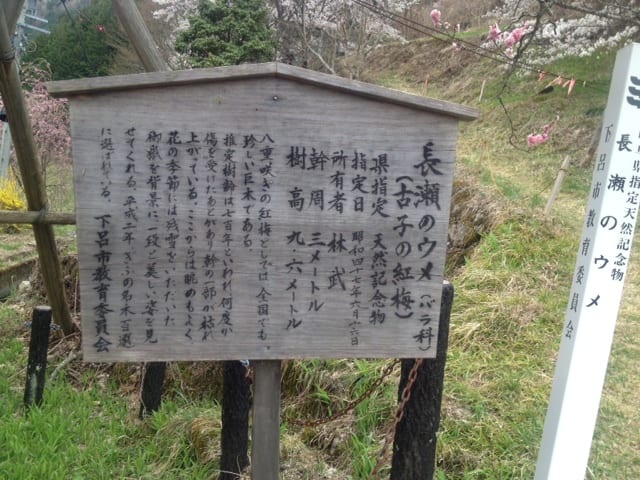 長瀬のウメ(バラ科)
(古子の紅梅)
県指定 天然記念物
指定日 昭和四七年六月二六日
所有者 林武
幹周 三メートル
樹高 九.六メートル
八重咲きの紅梅としては、全国でも、
珍しい巨木である。
推定樹齢は七百年といわれ、何度か
傷を受けたあとがあり幹の一部が枯れ
上がっている。ここからは眺めもよく
花の季節には残雪をいただいた
御嶽を背景に一段と美しい姿を見
せてくれる。平成二年ぎふの名木百選
に選ばれている。 下呂市教育委員会
県指定天然記念物
長瀬のウメ
下呂市教育委員会